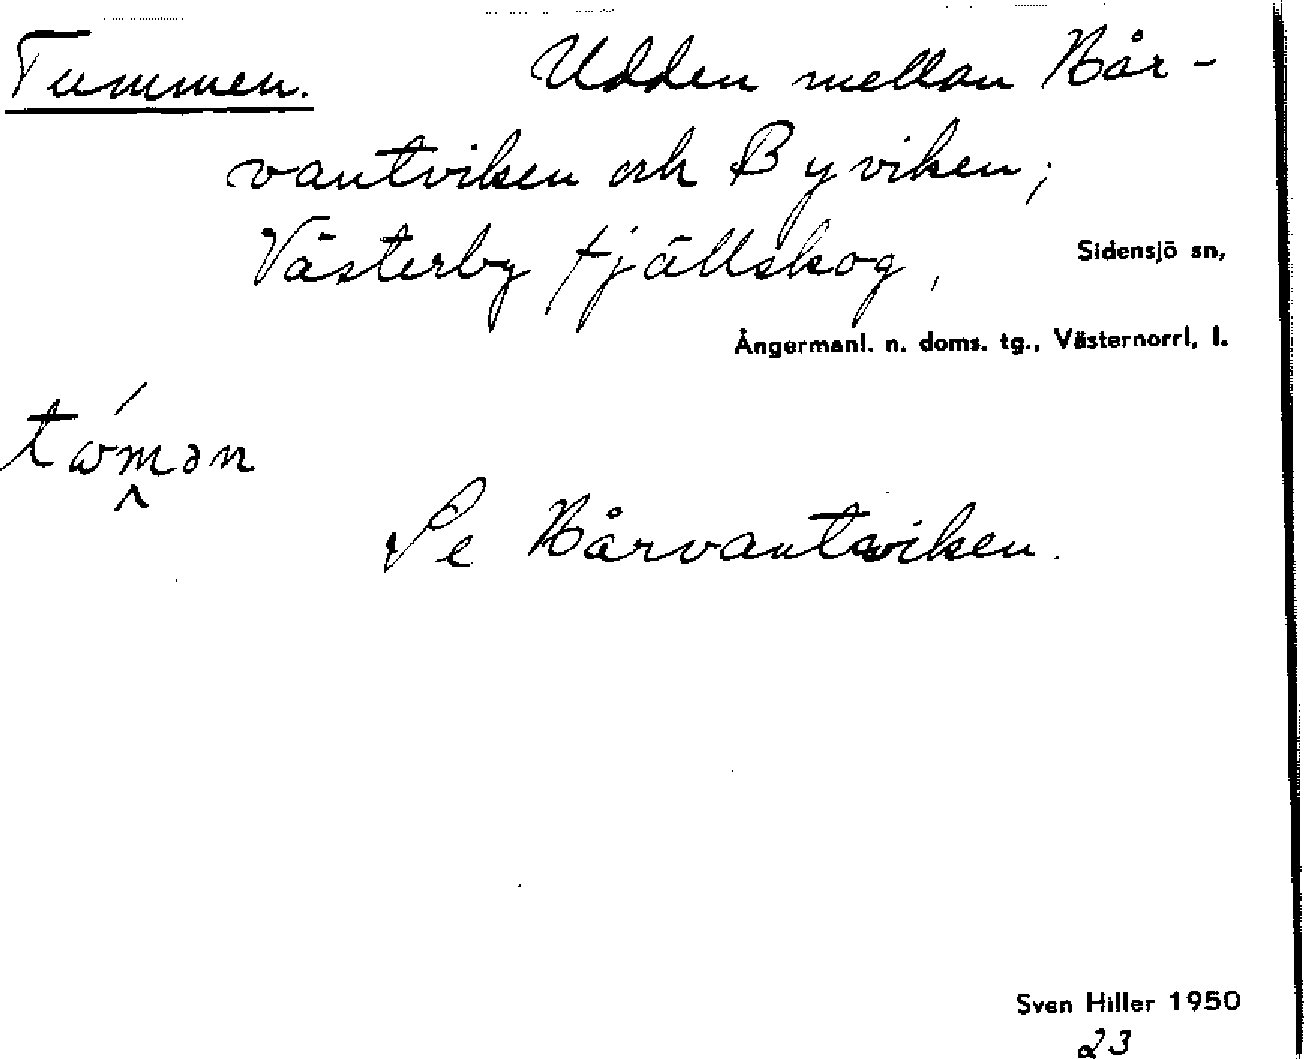 Tummen. Udden mellan Bår-
vantviken och Byviken;
Västerby fjällskog, Sidensjö sn,
Ångermanl. n. doms. tg., Västernorrl, l.
Se Bårvantsviken.
Sven Hiller 1950
23